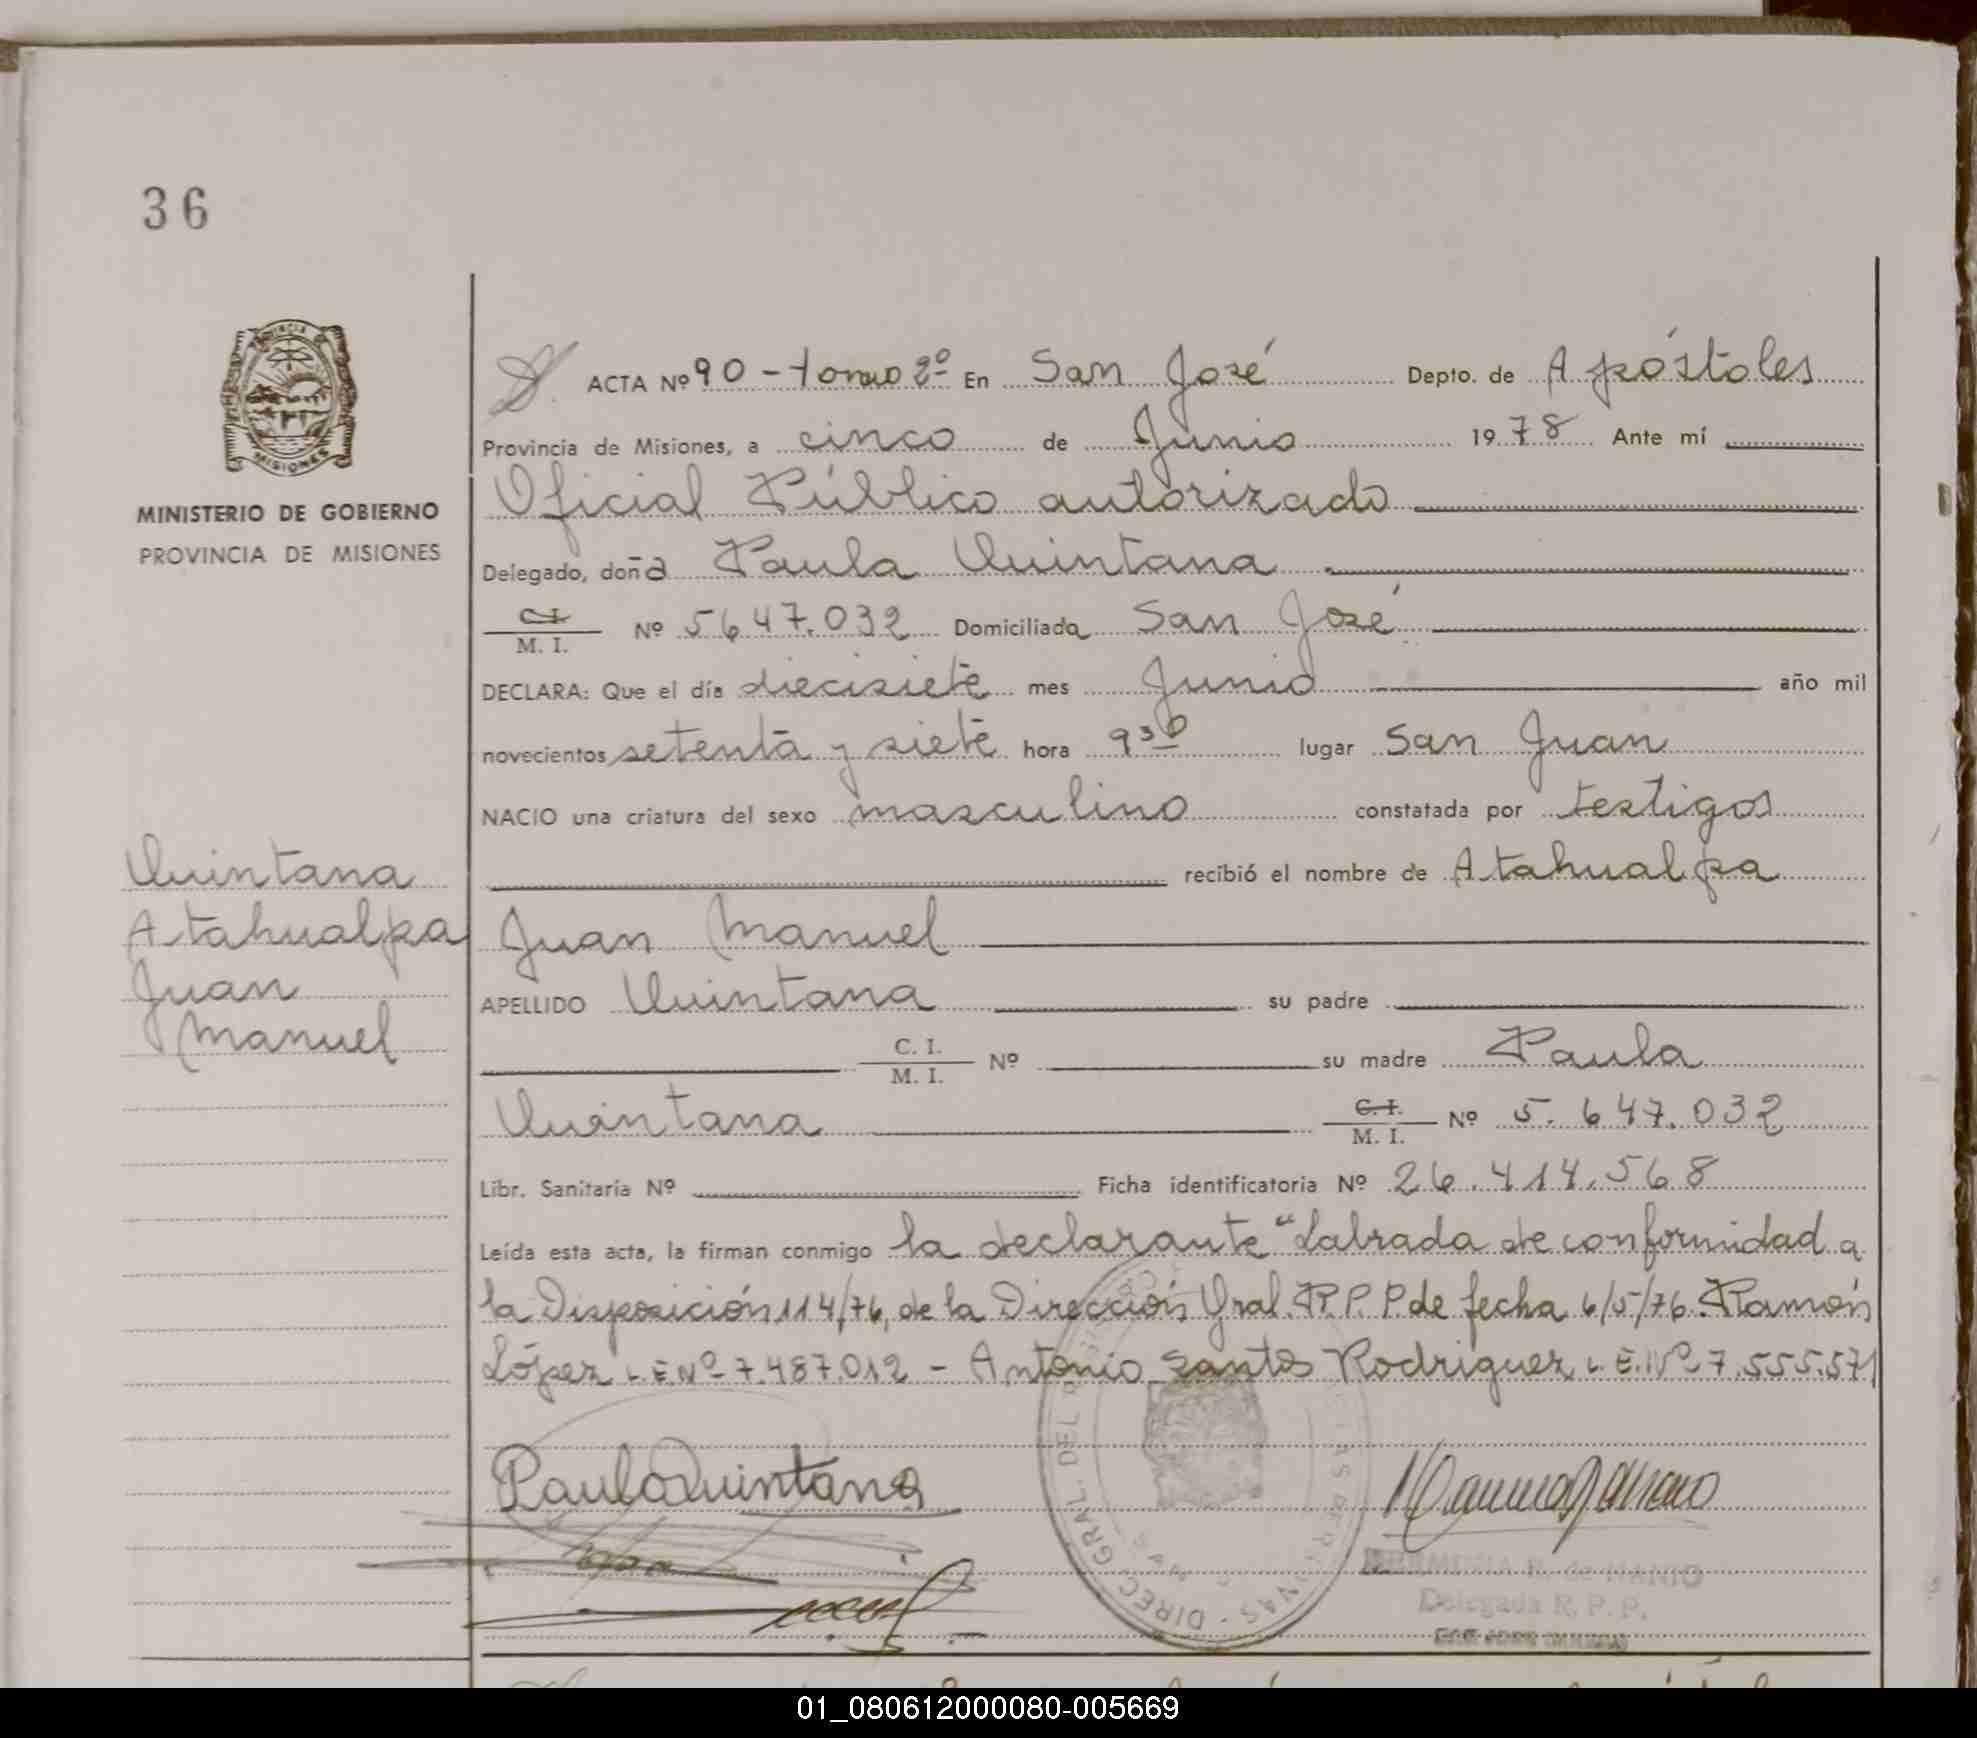 36
MISIONES
MINISTERIO DE GOBIERNO
PROVINCIA DE MISIONES
Quintana
Atahualpa
Juan
Manuel
ACTA Nº 90 - tomo 2º En San José Depto. de Apóstoles
Provincia de Misiones, a cinco de Junio 1978 Ante mí
Oficial Público autorizado
Delegado, doña Paula Quintana
C. I. / M. I. Nº 5647.032 Domiciliada San José
DECLARA: Que el día diecisiete mes Junio año mil
novecientos setenta y siete hora 9 30 lugar San Juan
NACIO una criatura del sexo masculino constatada por testigos
recibió el nombre de Atahualpa
Juan Manuel
APELLIDO Quintana su padre
C. I. / M. I. Nº su madre Paula
Quintana C. I. / M. I. Nº 5.647.032
Libr. Sanitaria Nº Ficha identificatoria Nº 26.414.568
Leída esta acta, la firman conmigo la declarante "Labrada de conformidad a
la Disposición 114/76, de la Dirección Gral. R. P. P de fecha 6/5/76. Ramón
López L.E.Nº 7.487.012 - Antonio Santos Rodriguez L.E.Nº 7.555.571
Paula Quintana
DIREC. GRAL. DEL R
HERMINIA R. de
Delegada R. P. P.
01_080612000080-005669